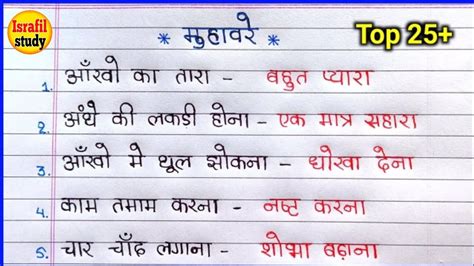 Israfil study
* मुहावरे *
Top 25+
1. आँखो का तारा - बहुत प्यारा
2. अंधे की लकड़ी होना - एक मात्र सहारा
3. आँखो मे धूल झोकना - धोखा देना
4. काम तमाम करना - नष्ट करना
5. चार चाँद लगाना - शोभा बढ़ाना